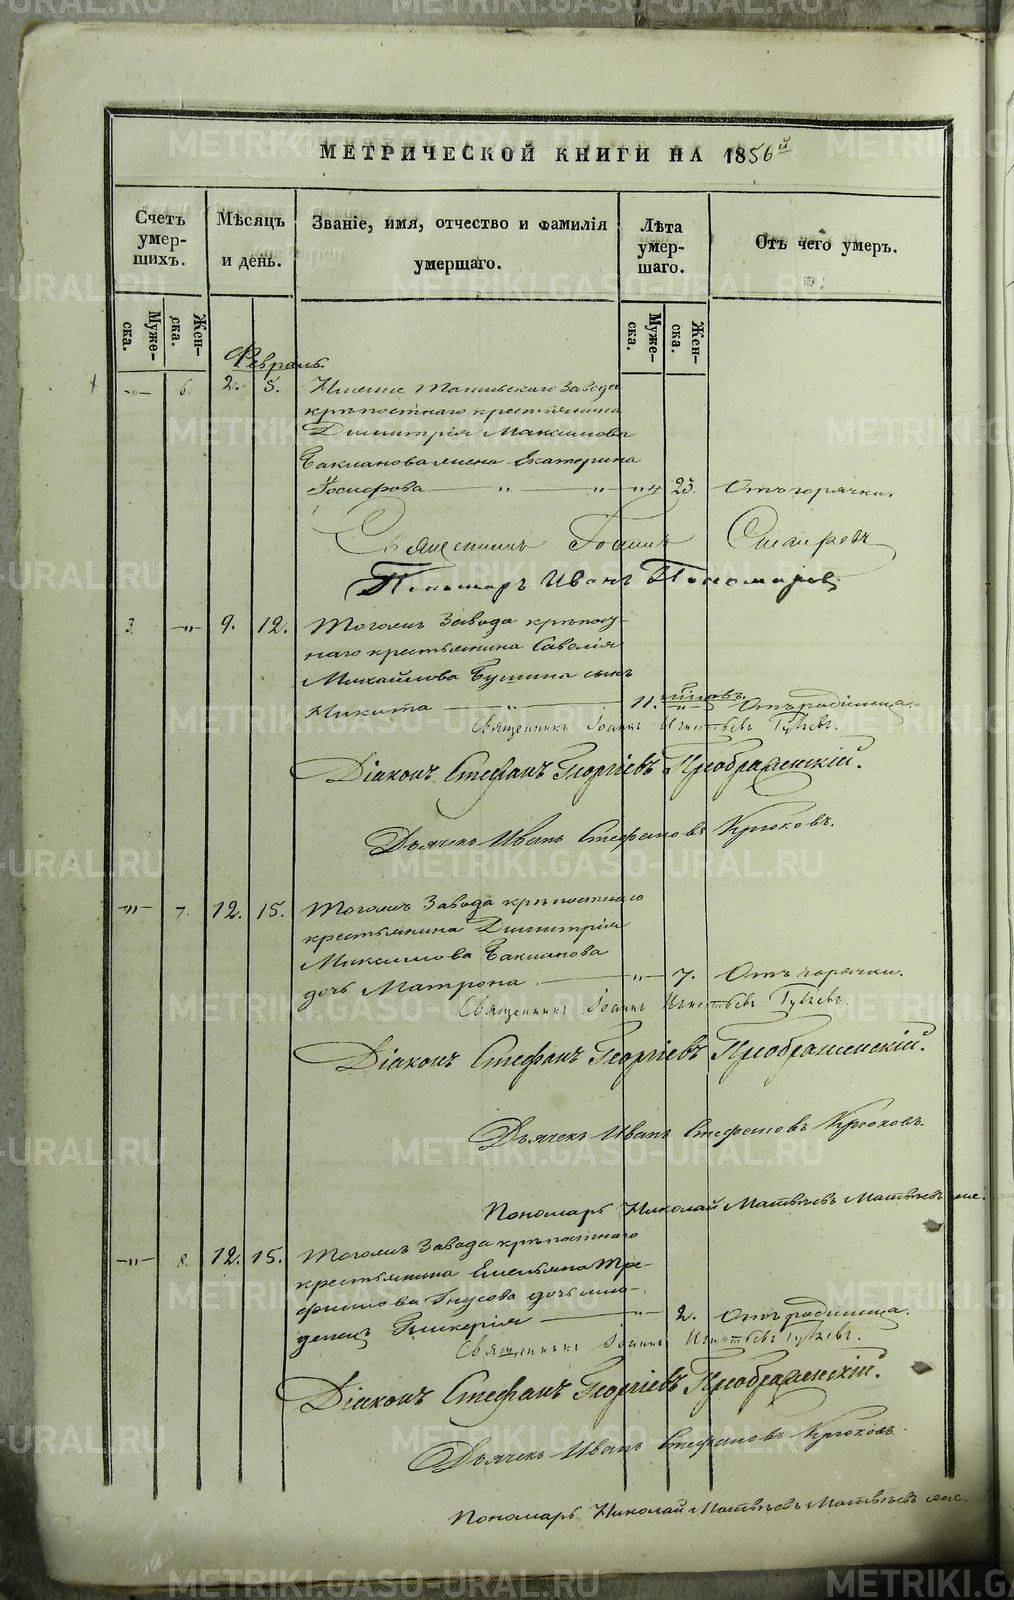 МЕТРИЧЕСКОЙ КНИГИ НА 1856й
Счетъ умер-щихъ.
Мѣсяцъ и день.
Званіе, имя, отчество и фамилія умершаго.
Лѣта умер-шаго.
Отъ чего умеръ.
Муже-ска.
Жен-ска.
Муже-ска.
Жен-ска.
Февраль
—„— 6. 2. 5. завода
крѣпостнаго крестьянина
Димитрія Максимова
Бакланова жена Екатерина
Іосифова — „ — „ 23. Отъ горячки.
Священникъ Іоаннъ
Пономарь Иванъ Пономаревъ
3. —„— 9. 12. Тогожъ Завода крѣпост-
наго крестьянина Савелія
Михайлова сынъ
Никита — „ — 11. „ Отъ родимца.
Священникъ Іоаннъ Игнатьевъ
Діаконъ Стефанъ Георгіевъ Преображенскій.
Дьячекъ Иванъ Стефановъ Крюковъ.
—„— 7. 12. 15. Тогожъ Завода крѣпостнаго
крестьянина Димитрія
Максимова Бакланова
дочь Матрона — „ — 7. Отъ горячки.
Священникъ Іоаннъ Игнатьевъ
Діаконъ Стефанъ Георгіевъ Преображенскій.
Дьячекъ Иванъ Стефановъ Крюковъ.
Пономарь Николай Матвѣевъ
—„— 8. 12. 15. Тогожъ Завода крѣпостнаго
крестьянина Емельяна Тро-
фимова дочь мла-
денецъ Гликерія — „ — 2. Отъ родимца.
Священникъ Іоаннъ Игнатьевъ
Діаконъ Стефанъ Георгіевъ Преображенскій.
Дьячекъ Иванъ Стефановъ Крюковъ.
Пономарь Николай Матвѣевъ
METRIKI.GASO-URAL.RU